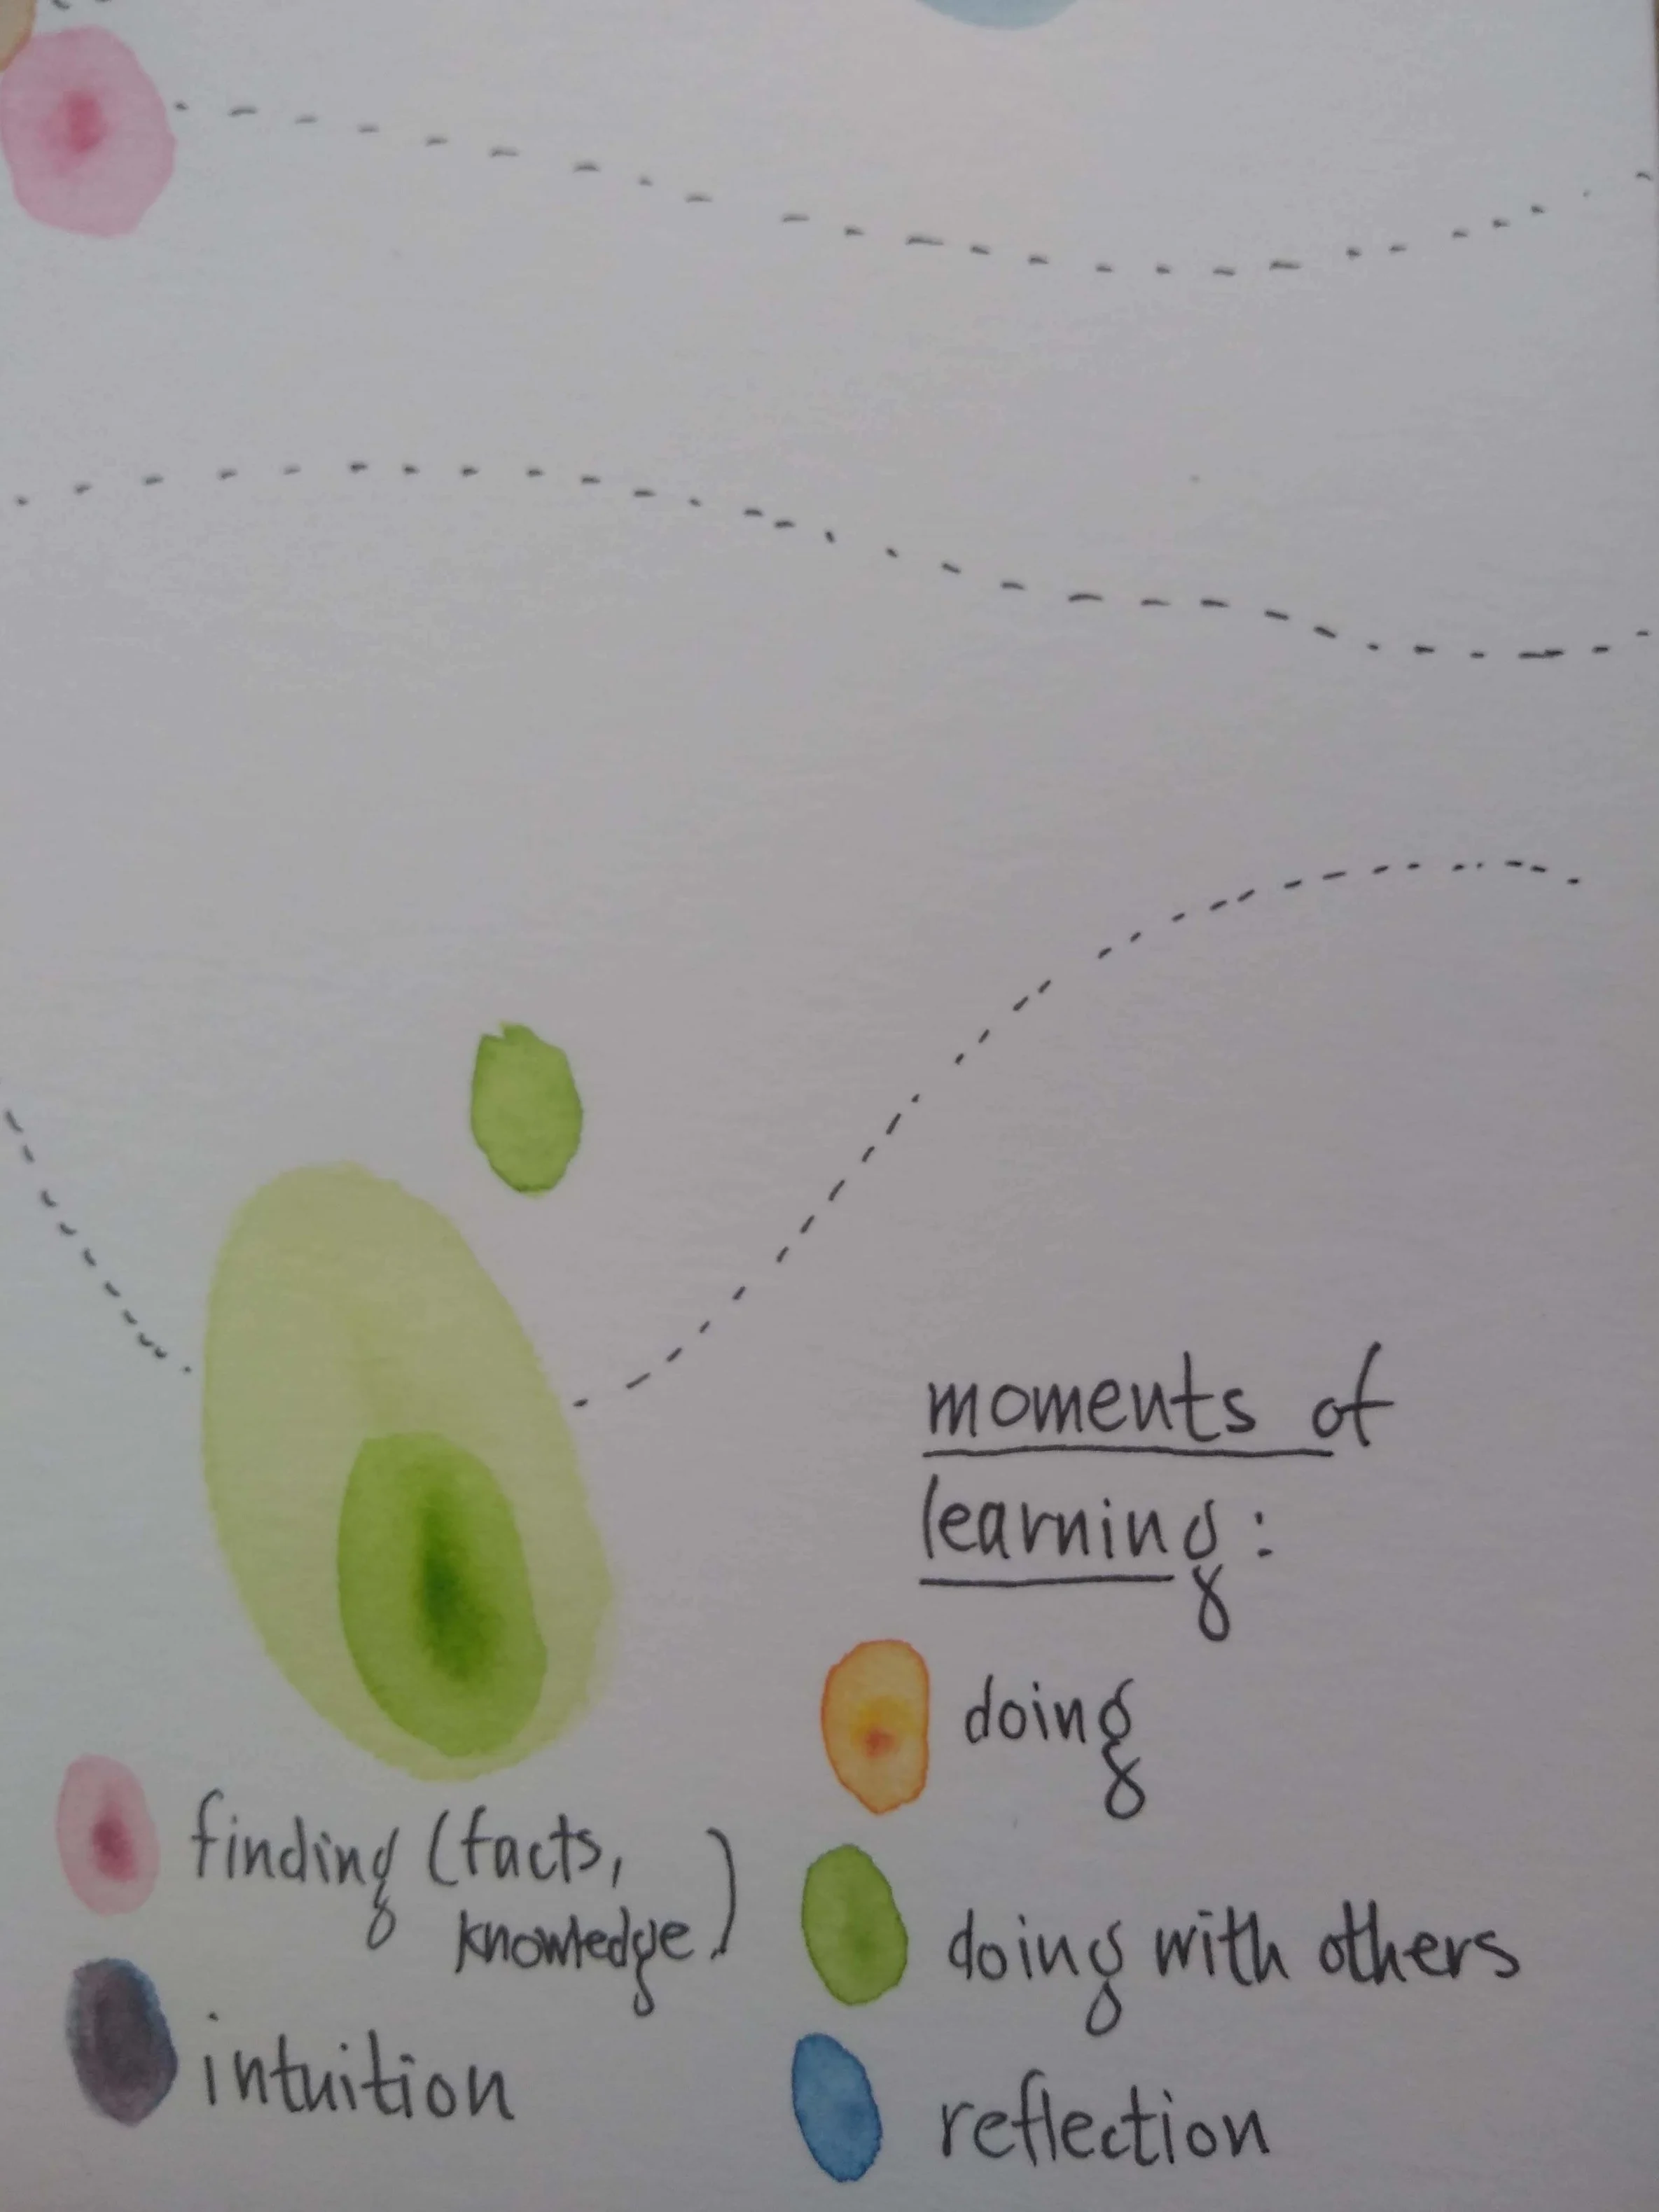 moments of
learning:
doing
finding (facts,
knowledge)
doing with others
intuition
reflection